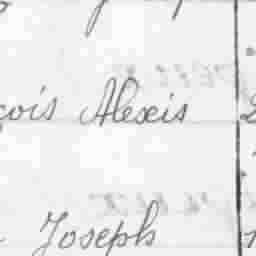 çois Alexis
Joseph